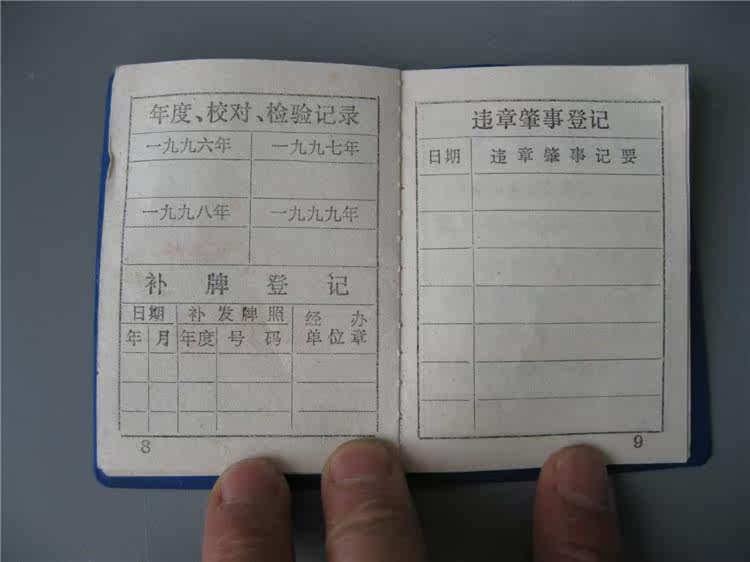 年度、校对、检验记录
一九九六年 一九九七年
一九九八年 一九九九年
补牌登记
日期 补发牌照 经办
年 月 年度 号码 单位章
8
违章肇事登记
日期 违章肇事记要
9